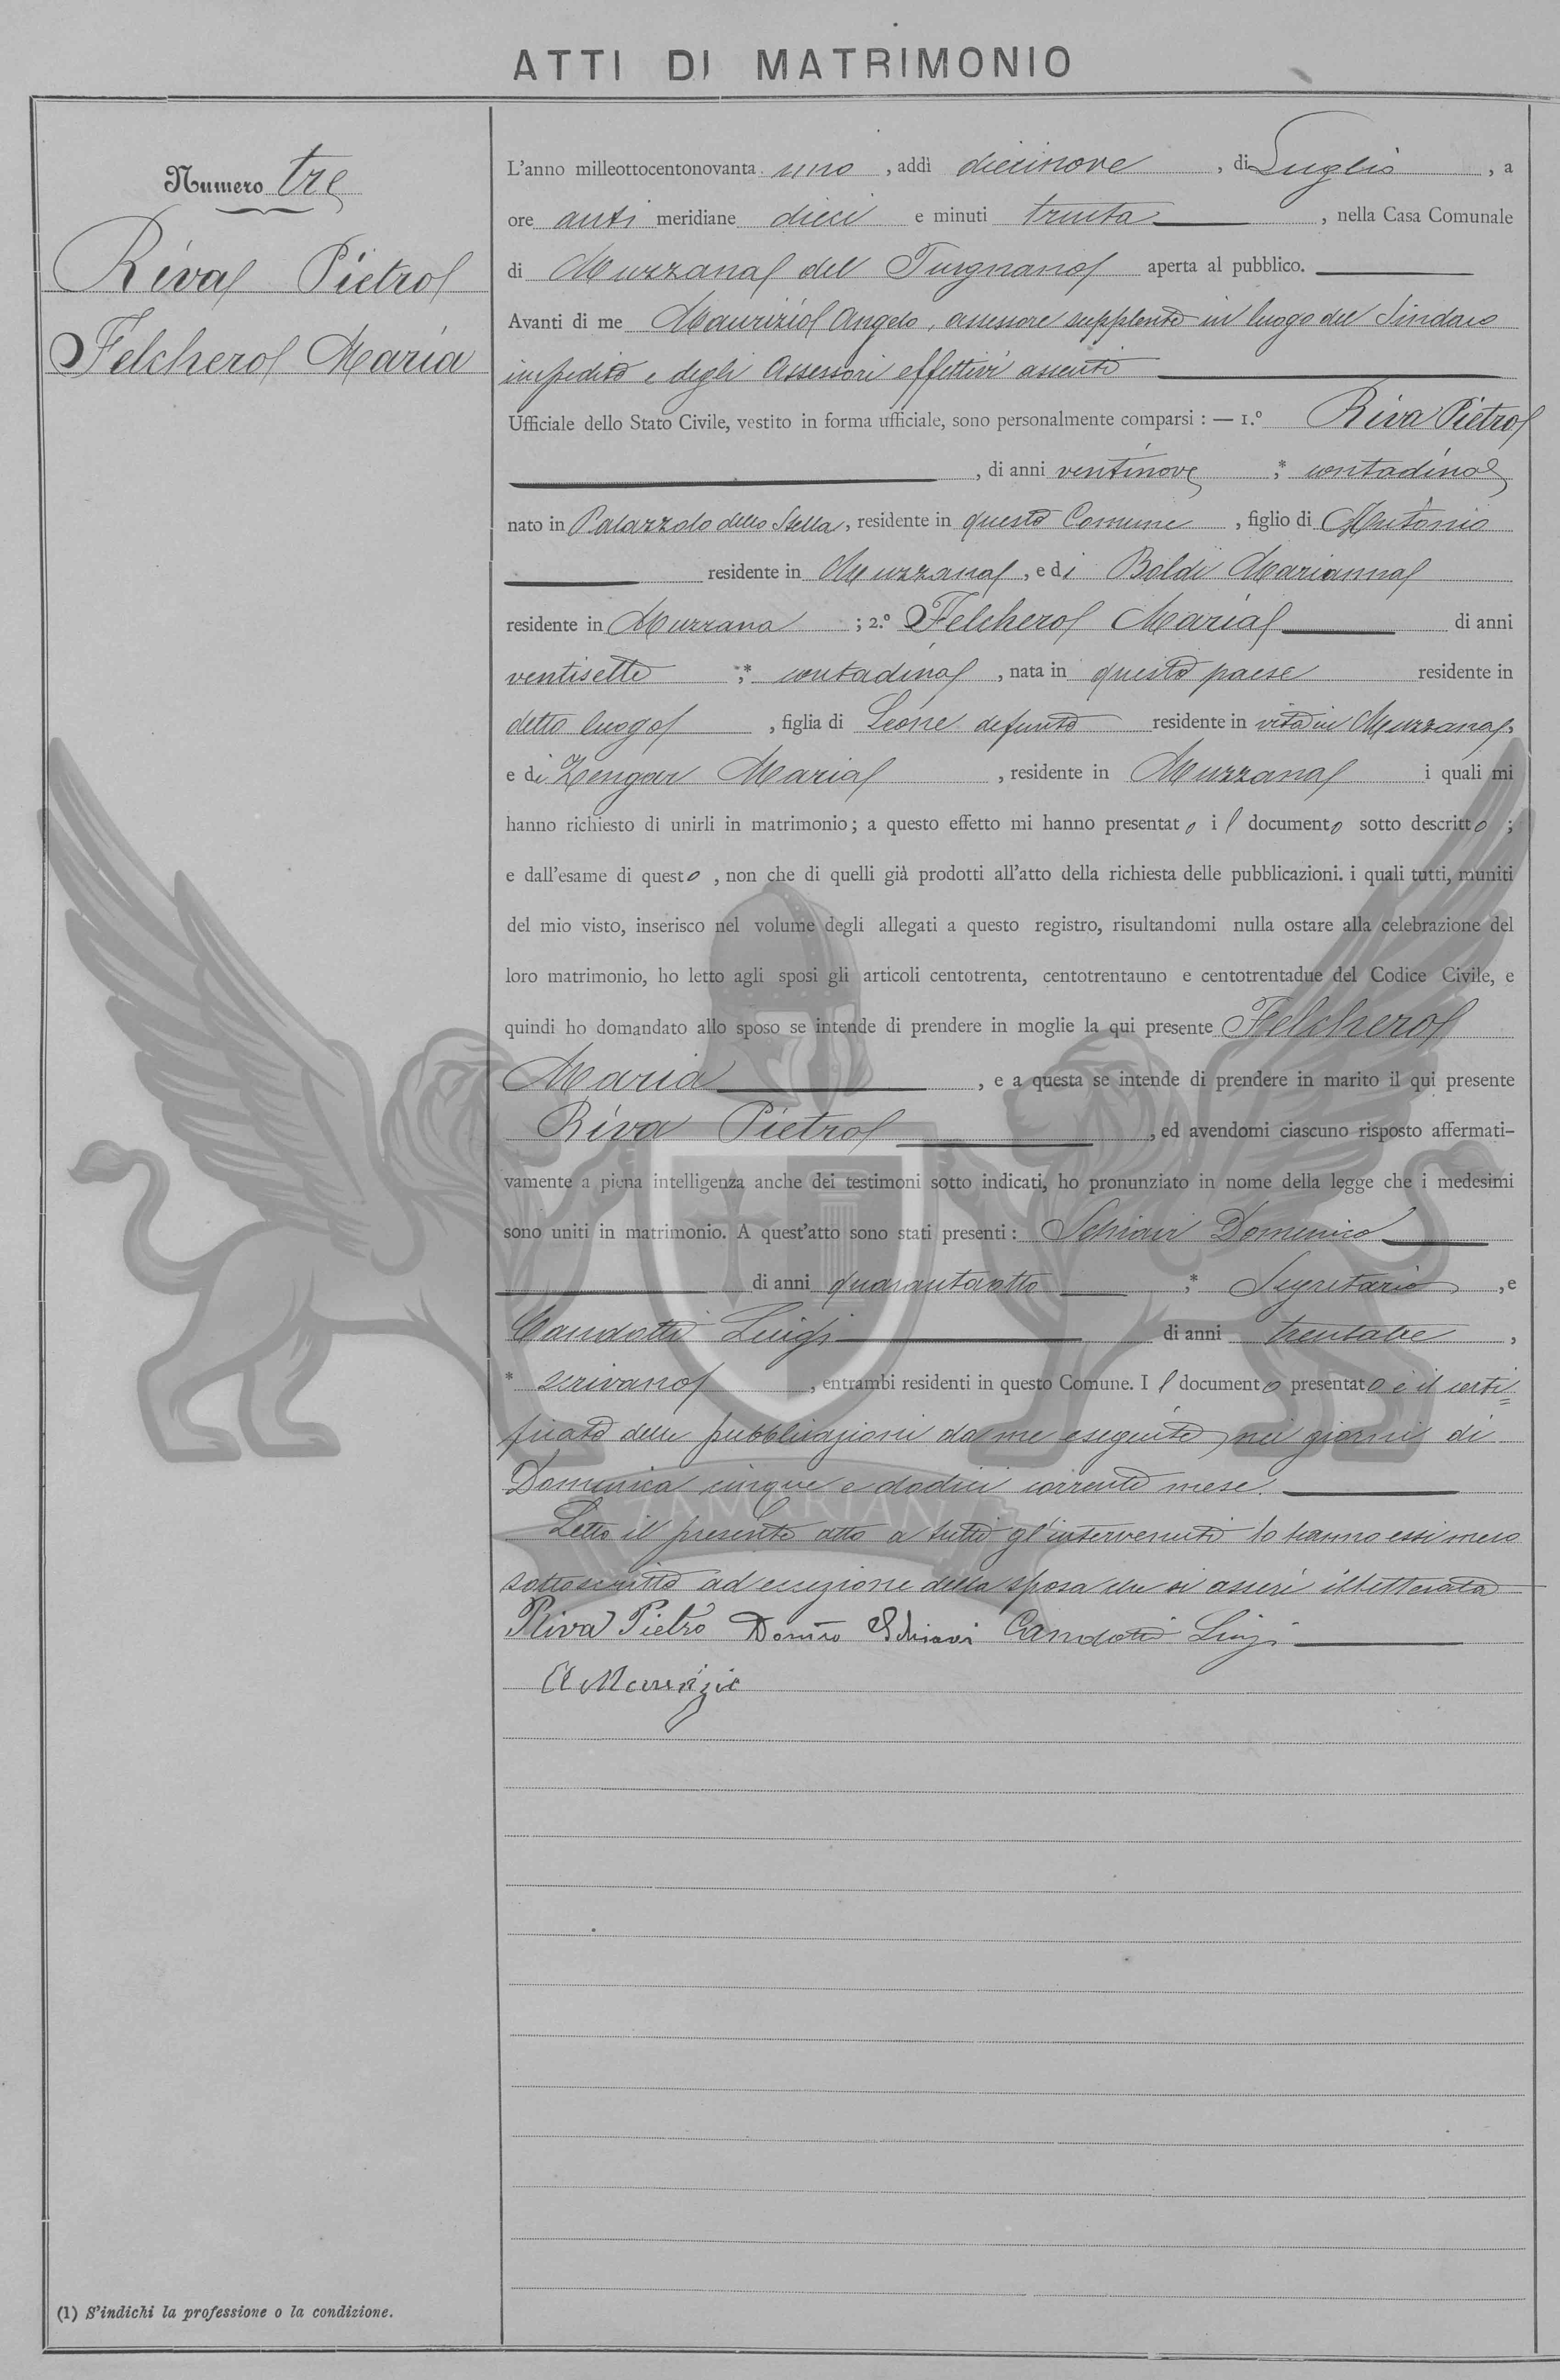 ATTI DI MATRIMONIO
Numero tre
Riva Pietro
Felchero Maria
L'anno milleottocentonovanta uno, addì diecinove, di Luglio, a
ore anti meridiane dieci e minuti trenta, nella Casa Comunale
di Muzzana del Turgnano aperta al pubblico.
Avanti di me Maurizio Angelo, assessore supplente in luogo del Sindaco
impedito e degli Assessori effettivi assenti
Ufficiale dello Stato Civile, vestito in forma ufficiale, sono personalmente comparsi : — 1.º Riva Pietro
, di anni ventinove ;* contadino
nato in Palazzolo dello Stella, residente in questo Comune, figlio di Antonio
residente in Muzzana, e di Boldi Marianna
residente in Muzzana ; 2.º Felchero Maria di anni
ventisette ;* contadina, nata in questo paese residente in
detto luogo, figlia di Leone defunto residente in vita in Muzzana,
e di Zengar Maria, residente in Muzzana i quali mi
hanno richiesto di unirli in matrimonio; a questo effetto mi hanno presentato il documento sotto descritto ;
e dall'esame di questo, non che di quelli già prodotti all'atto della richiesta delle pubblicazioni. i quali tutti, muniti
del mio visto, inserisco nel volume degli allegati a questo registro, risultandomi nulla ostare alla celebrazione del
loro matrimonio, ho letto agli sposi gli articoli centotrenta, centotrentauno e centotrentadue del Codice Civile, e
quindi ho domandato allo sposo se intende di prendere in moglie la qui presente Felchero
Maria, e a questa se intende di prendere in marito il qui presente
Riva Pietro, ed avendomi ciascuno risposto affermati-
vamente a piena intelligenza anche dei testimoni sotto indicati, ho pronunziato in nome della legge che i medesimi
sono uniti in matrimonio. A quest'atto sono stati presenti : Schiavi Domenico
di anni quarantaotto ;* Segretario, e
Candotti Luigi di anni trentatre,
* scrivano, entrambi residenti in questo Comune. Il documento presentato è il certi=
ficato delle pubblicazioni da me eseguite nei giorni di
Domenica cinque e dodici corrente mese.
Letto il presente atto a tutti gl'intervenuti lo hanno essi meco
sottoscritto ad eccezione della sposa che si asserì illetterata
Riva Pietro Domco Schiavi Candotti Luigi
A Maurizio
ZAMARIAN
(1) S'indichi la professione o la condizione.